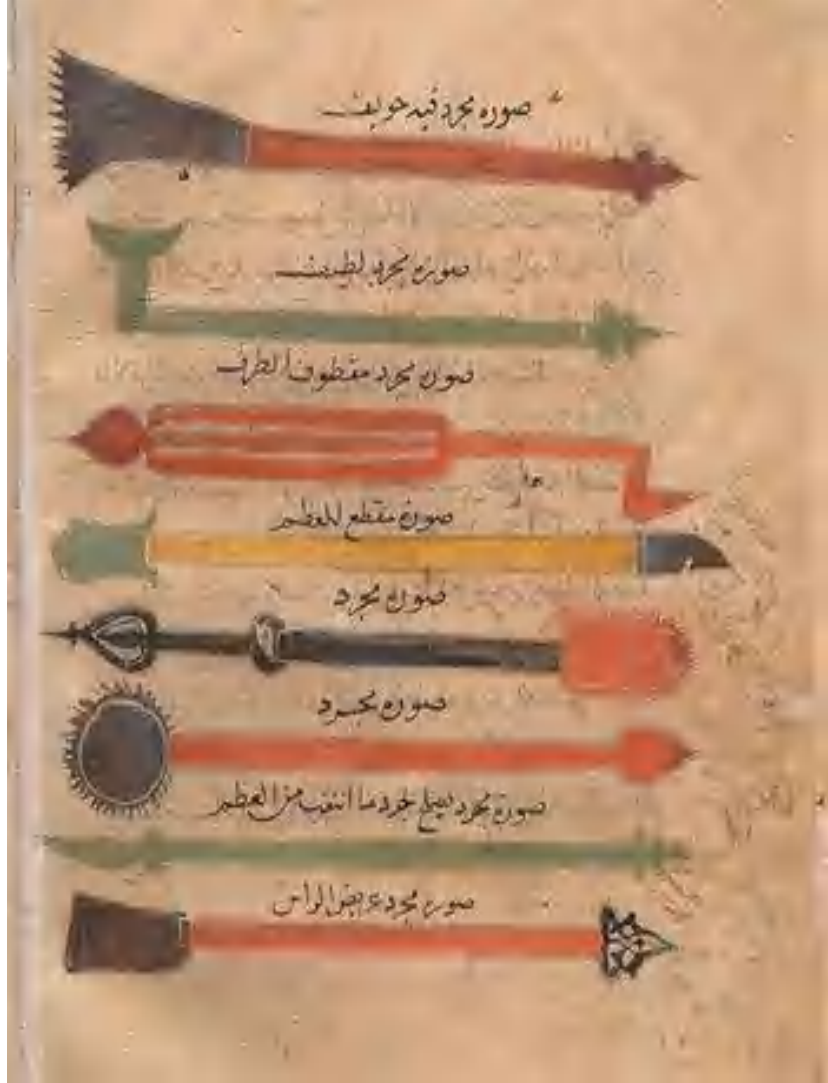 صورة مجرد فيه تجويف
صورة مجرد لطيف
صورة مجرد معطوف الطرف
صورة مقطع للعظم
صورة مجرد
صورة مجرد
صورة مجرد يصلح لجرد ما انثقب من العظم
صورة مجرد عريض الراس